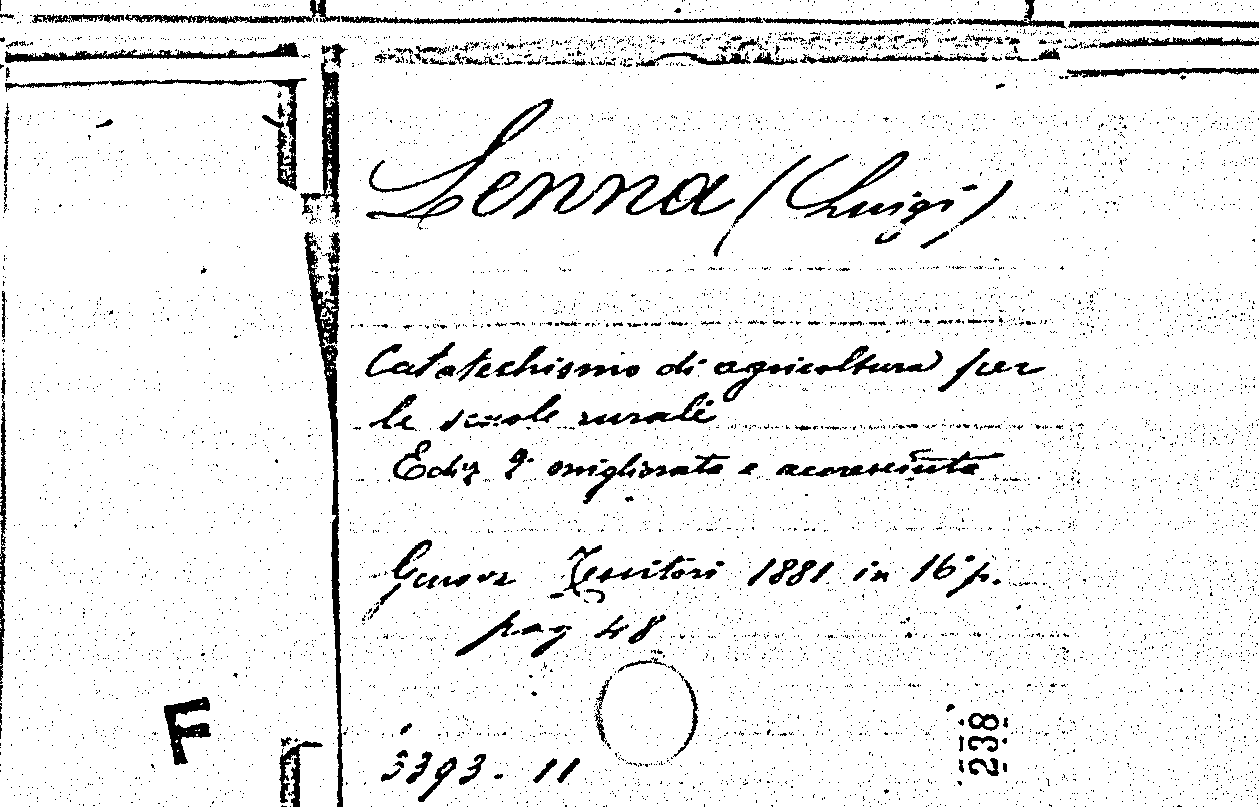 Lenna (Luigi)
Catatechismo di agricoltura per
le scuole rurali
Ediz 2ª migliorata e accresciuta
Genova 1881 in 16° p.
pag 48
F
238
3393-11